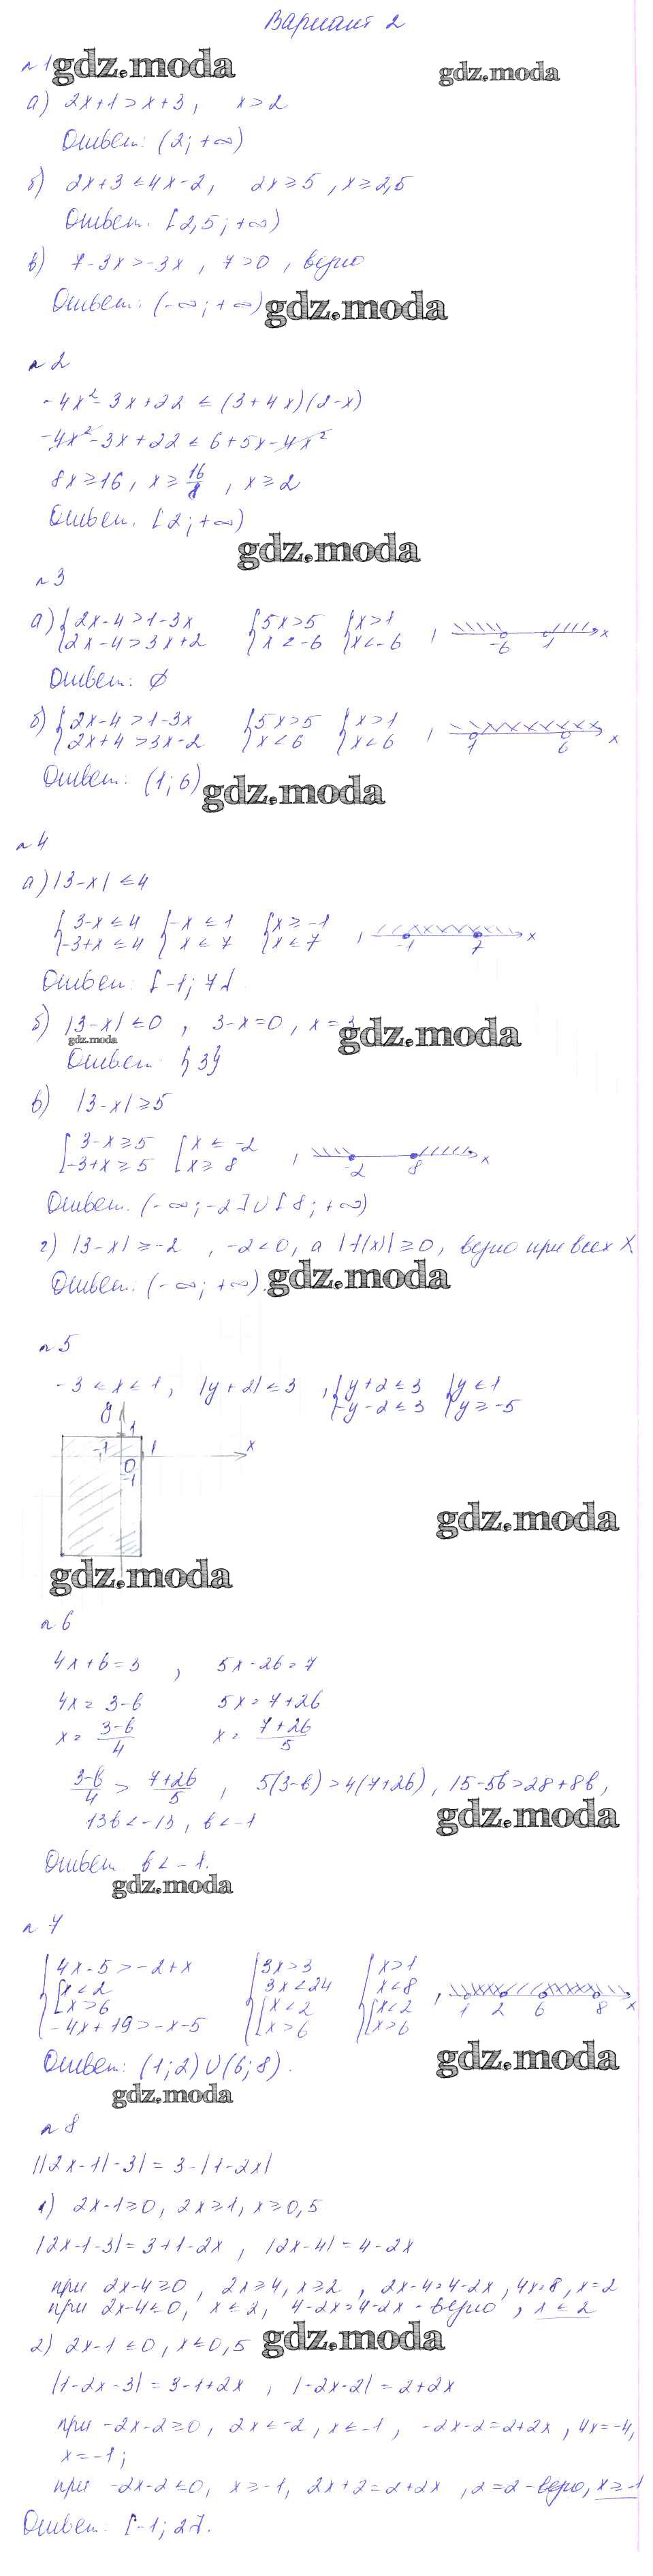 Вариант 2
№1 gdz.moda gdz.moda
а) 2x+1>x+3, x>2
Ответ: (2; +∞)
б) 2x+3≤4x-2, 2x≥5, x≥2,5
Ответ. [2,5; +∞)
в) 7-3x>-3x, 7>0, верно
Ответ: (-∞; +∞) gdz.moda
№2
-4x²-3x+22 ≤ (3+4x)(2-x)
-4x²-3x+22 ≤ 6+5x-4x²
8x≥16, x≥16/8, x≥2
Ответ. [2; +∞)
gdz.moda
№3
а) {2x-4>1-3x {5x>5 {x>1
{2x-4>3x+2 {x<-6 {x<-6 , -6 1 x
Ответ: ∅
б) {2x-4>1-3x {5x>5 {x>1
{2x+4>3x-2 {x<6 {x<6 , 1 6 x
Ответ: (1; 6) gdz.moda
№4
а) |3-x| ≤4
{3-x≤4 {-x≤1 {x≥-1
{-3+x≤4 {x≤7 {x≤7 , -1 7 x
Ответ: [-1; 7].
б) |3-x|≤0, 3-x=0, x=3 gdz.moda
gdz.moda
Ответ. {3}
в) |3-x|≥5
[3-x≥5 [x≤-2
[-3+x≥5 [x≥8 , -2 8 x
Ответ. (-∞; -2]∪[8; +∞)
г) |3-x|≥-2, -2<0, а |f(x)|≥0, верно при всех x
Ответ. (-∞; +∞). gdz.moda
№5
-3≤x≤1, |y+2|≤3, {y+2≤3 {y≤1
{-y-2≤3 {y≥-5
y 1
-1 1 x
0
-1
gdz.moda
gdz.moda
№6
4x+b=3, 5x-2b=7
4x=3-b 5x=7+2b
x=(3-b)/4 x=(7+2b)/5
(3-b)/4 > (7+2b)/5, 5(3-b)>4(7+2b), 15-5b>28+8b,
13b<-13, b<-1 gdz.moda
Ответ b<-1.
gdz.moda
№7
{4x-5>-2+x {3x>3 {x>1
[x<2 3x<24 x<8
[x>6 [x<2 [x<2 , 1 2 6 8 x
-4x+19>-x-5 [x>6 [x>6
Ответ: (1; 2)∪(6; 8). gdz.moda
gdz.moda
№8
||2x-1|-3| = 3-|1-2x|
1) 2x-1≥0, 2x≥1, x≥0,5
|2x-1-3|=3+1-2x, |2x-4|=4-2x
при 2x-4≥0, 2x≥4, x≥2, 2x-4=4-2x, 4x=8, x=2
при 2x-4≤0, x≤2, 4-2x=4-2x - верно, x≤2
2) 2x-1≤0, x≤0,5 gdz.moda
|1-2x-3|=3-1+2x, |-2x-2|=2+2x
при -2x-2≥0, 2x≤-2, x≤-1, -2x-2=2+2x, 4x=-4,
x=-1;
при -2x-2≤0, x≥-1, 2x+2=2+2x, 2=2 - верно, x≥-1
Ответ: [-1; 2].